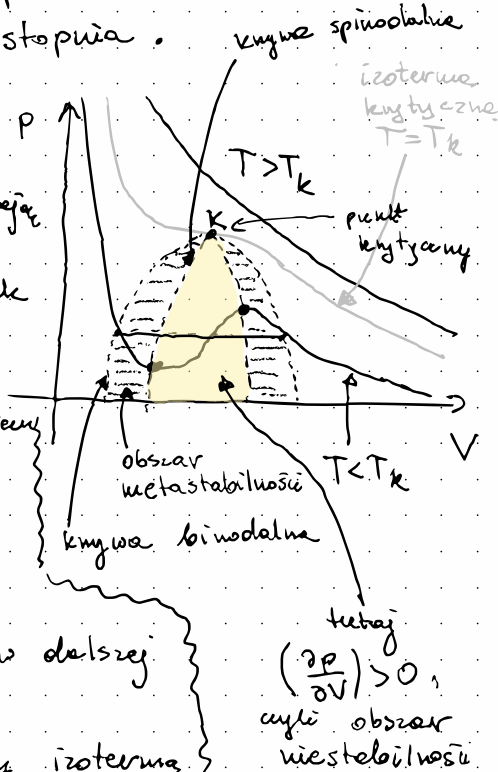 stopnia.
krzywa spinodalna
izoterma
krytyczna
T=Tk
P
T>Tk
K
punkt
krytyczny
V
obszar
metastabilności
T<Tk
krzywa binodalna
tutaj
(∂p/∂V)>0,
czyli obszar
niestabilności
w dalszej
izotermą